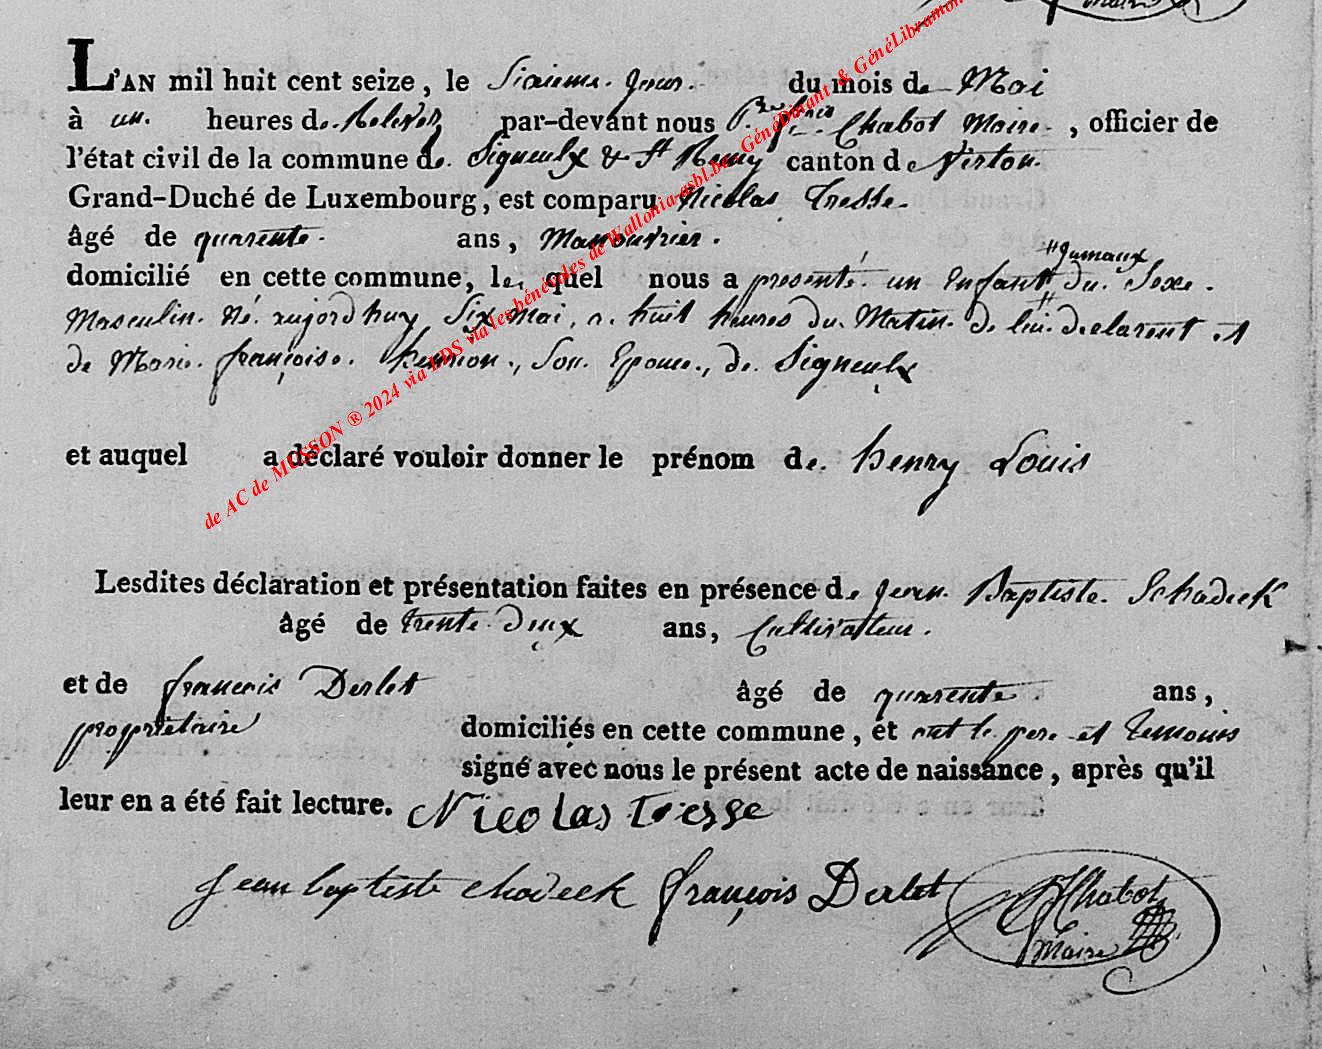 Maire
L'AN mil huit cent seize, le Sixieme jour. du mois de Mai
à un. heures de Relevez par-devant nous Pre fois Chabot Maire , officier de
l'état civil de la commune de Signeulx & St Remy canton de Virton.
Grand-Duché de Luxembourg, est comparu Nicolas Tresse
âgé de quarente ans, Manouvrier.
domicilié en cette commune, le quel nous a presenté un Enfant # jumaux # du Sexe
Masculin Né aujordhuy Six mai, a huit heures du Matin de lui declarent et
de Marie françoise, Son Epouse, de Signeulx
et auquel a déclaré vouloir donner le prénom de henry Louis
Lesdites déclaration et présentation faites en présence de jean Baptiste Schadeck
âgé de trente Deux ans, Cultivateur.
et de francois Derlet âgé de quarente ans,
proprietaire domiciliés en cette commune, et ont le pere et temoins
signé avec nous le présent acte de naissance, après qu'il
leur en a été fait lecture. Nicolas tresse
jean baptiste chadeck françois Derlet Chabot
Maire
de AC de MUSSON ® 2024 via FDS via les bénévoles de Wallonia-asbl.be, GénéDinant & GénéLibramont